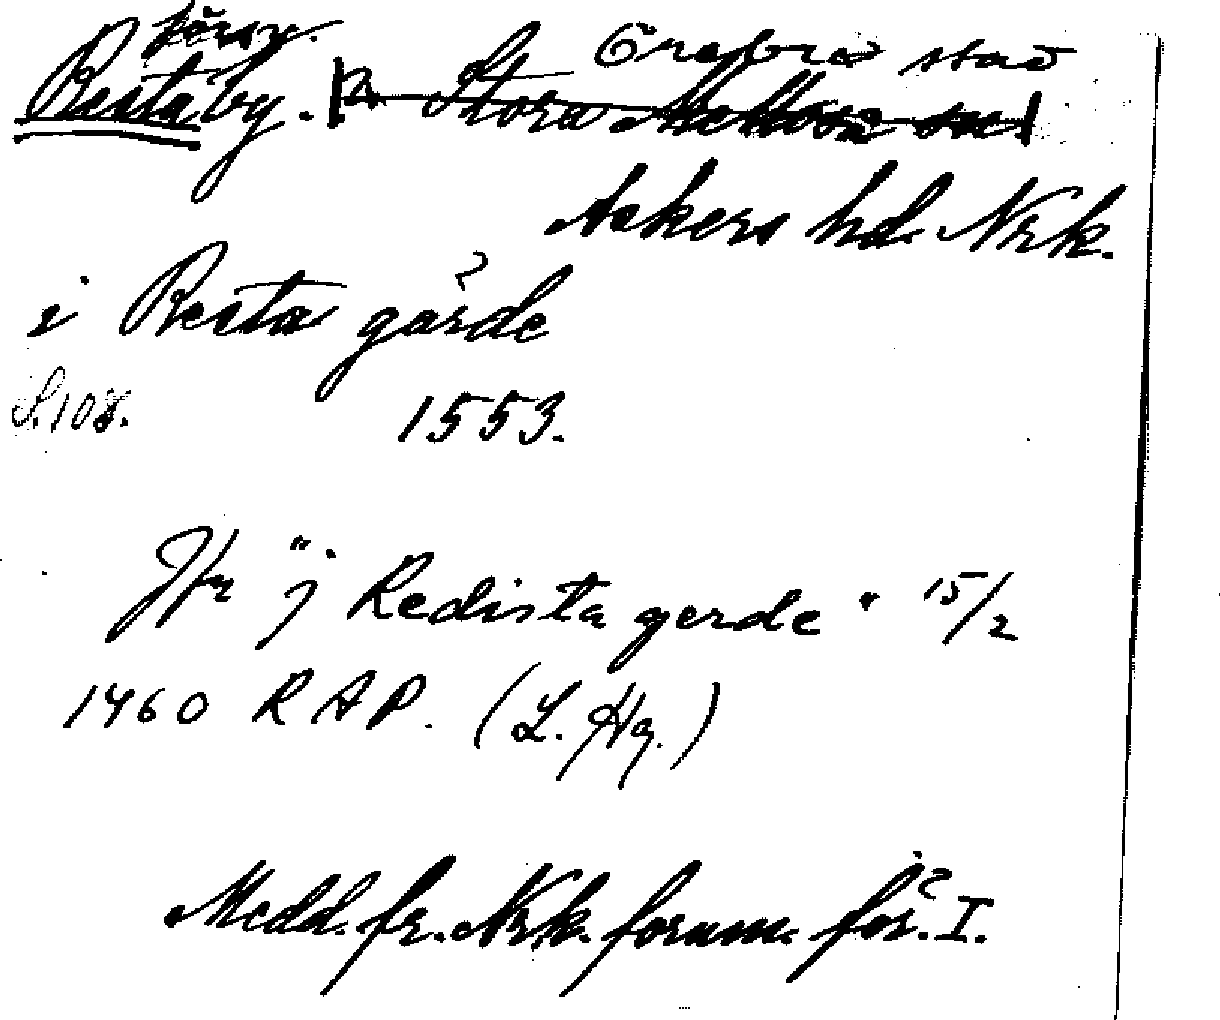 försv. Örebro stad
Resta by. Stora Mellösa sn
Askers hd. Nrk.
i Resta gärde
S. 108. 1553.
Jfr "j Redista gerde" 15/2
1460 RAP. (L. Hg.)
Medd. fr. Nrk. fornm. för. I.